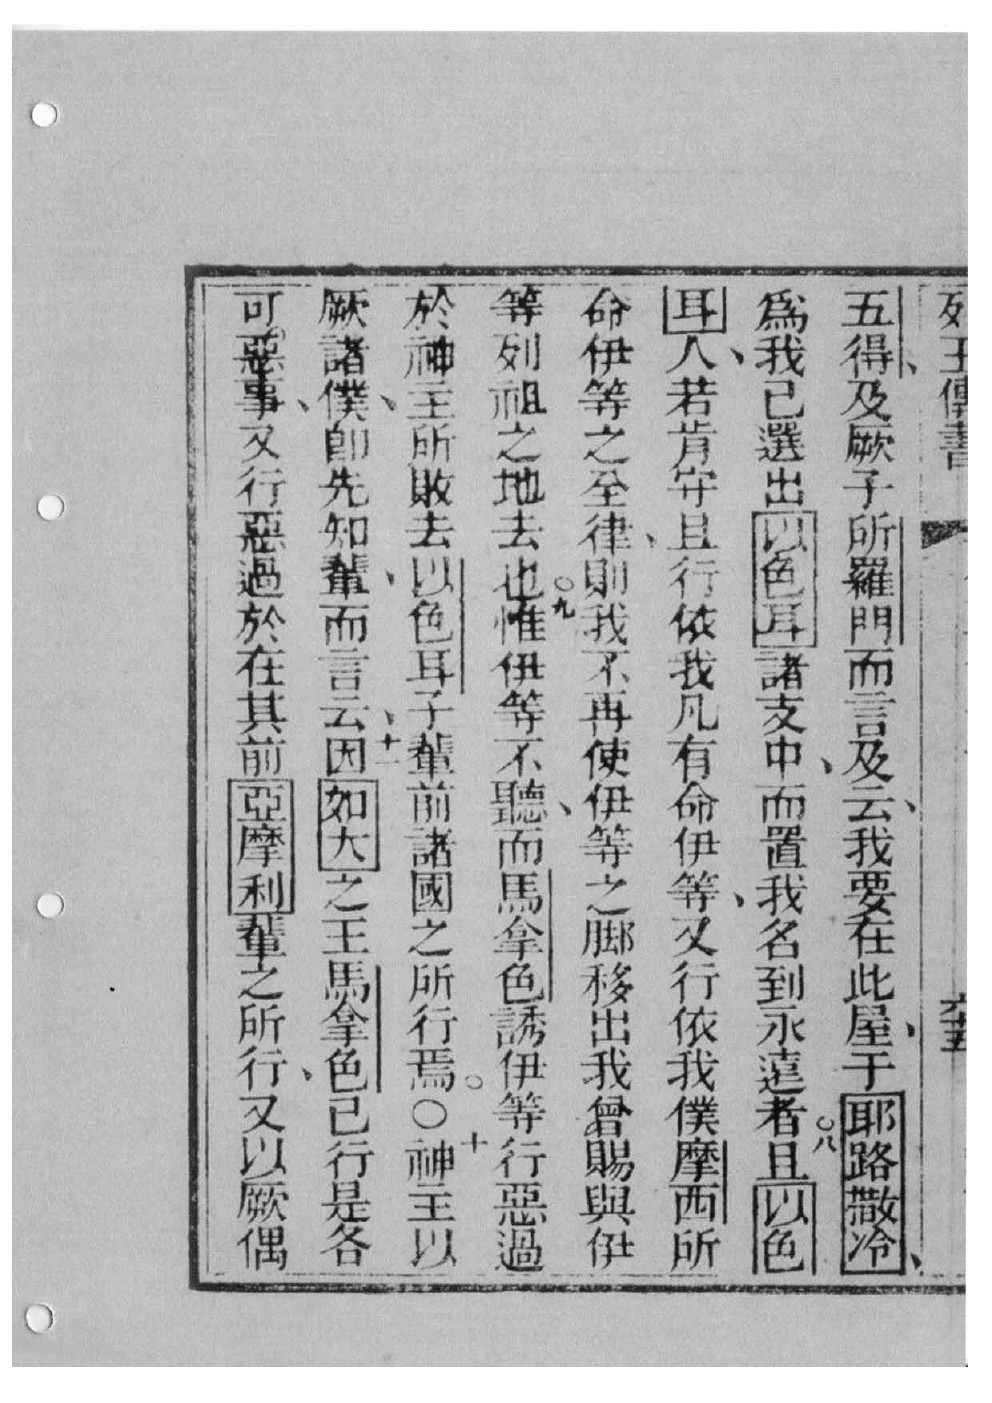 列王傳書
六十五
五得及厥子所羅門而言及云我要在此屋于耶路撒冷
為我已選出以色耳諸支中而置我名到永遠者○八且以色
耳人若肯守且行依我凡有命伊等又行依我僕摩西所
命伊等之至律則我不再使伊等之脚移出我曾賜與伊
等列祖之地去也○九惟伊等不聽而馬拿色誘伊等行惡過
於神主所敗去以色耳子輩前諸國之所行焉○十神主以
厥諸僕即先知輩而言云十一因如大之王馬拿色已行是各
可惡事又行惡過於在其前亞摩利輩之所行又以厥偶